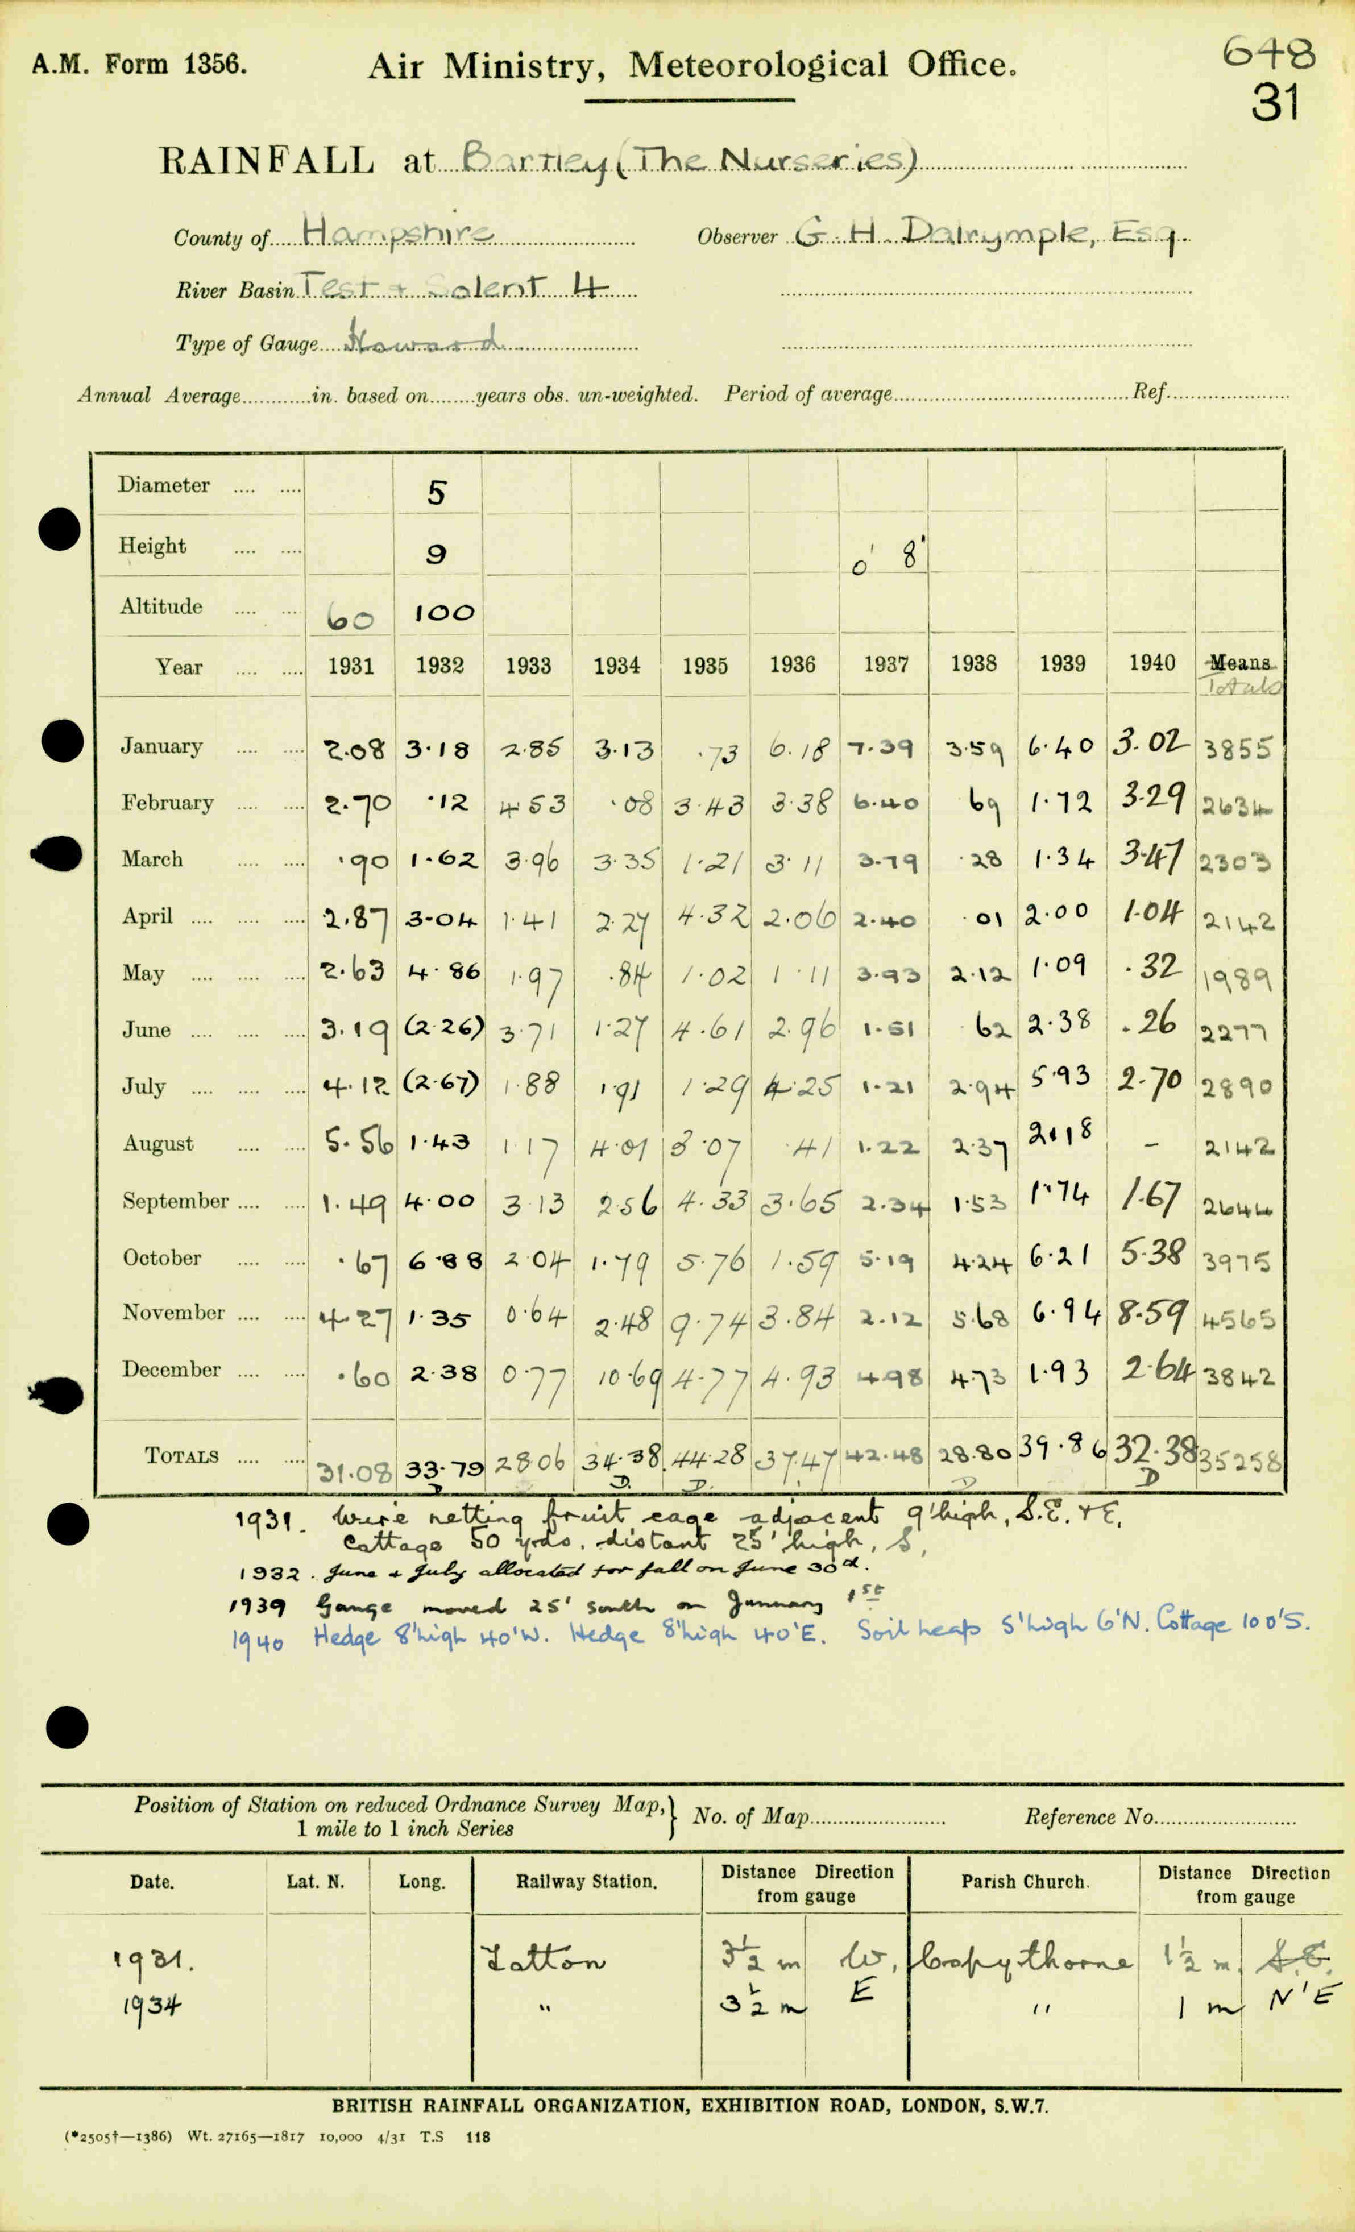 A.M. Form 1356. Air Ministry, Meteorological Office. 648
31
RAINFALL at Bartley (The Nurseries)
County of Hampshire Observer G. H. Dalrymple, Esq.
River Basin Test + Solent 4
Type of Gauge Howard
Annual Average in. based on years obs. un-weighted. Period of average Ref.
Diameter 5
Height 9 0' 8"
Altitude 60 100
Year 1931 1932 1933 1934 1935 1936 1937 1938 1939 1940 Means
Totals
January 2.08 3.18 2.85 3.13 .73 6.18 7.39 3.59 6.40 3.02 3855
February 2.70 .12 4.53 .08 3.43 3.38 6.40 69 1.72 3.29 2634
March .90 1.62 3.96 3.35 1.21 3.11 3.79 .28 1.34 3.47 2303
April 2.87 3.04 1.41 2.27 4.32 2.06 2.40 .01 2.00 1.04 2142
May 2.63 4.86 1.97 .84 1.02 1.11 3.93 2.12 1.09 .32 1989
June 3.19 (2.26) 3.71 1.27 4.61 2.96 1.51 62 2.38 .26 2277
July 4.12 (2.67) 1.88 1.91 1.29 4.25 1.21 2.94 5.93 2.70 2890
August 5.56 1.43 1.17 4.01 3.07 .41 1.22 2.37 2.18 - 2142
September 1.49 4.00 3.13 2.56 4.33 3.65 2.34 1.53 1.74 1.67 2644
October .67 6.88 2.04 1.79 5.76 1.59 5.19 4.24 6.21 5.38 3975
November 4.27 1.35 0.64 2.48 9.74 3.84 2.12 5.68 6.94 8.59 4565
December .60 2.38 0.77 10.69 4.77 4.93 4.98 4.73 1.93 2.64 3842
TOTALS 31.08 33.79 28.06 34.38 44.28 37.47 42.48 28.80 39.86 32.38 35258
D D. D. D D
1931. Wire netting fruit cage adjacent 9' high, S.E. + E.
Cottage 50 yds. distant 25' high, S,
1932. June + July allocated for fall on June 30th.
1939 Gauge moved 25' south on January 1st
1940 Hedge 8' high 40' W. Hedge 8' high 40' E. Soil heap 5' high 6' N. Cottage 100' S.
Position of Station on reduced Ordnance Survey Map, No. of Map Reference No.
1 mile to 1 inch Series
Date. Lat. N. Long. Railway Station. Distance Direction from gauge Parish Church. Distance Direction from gauge
1931. Totton 3½ m W. Copythorne 1½ m. S.E.
1934 " 3½ m E " 1 m N'E
BRITISH RAINFALL ORGANIZATION, EXHIBITION ROAD, LONDON, S.W.7.
(*2505†—1386) Wt. 27165—1817 10,000 4/31 T.S 118